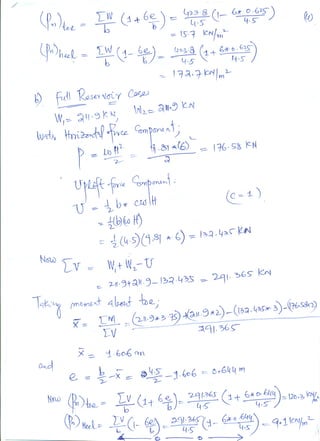 (Pn)toe = ΣW/b (1 + 6e/b) = 423.8/4.5 (1 - 6*0.625/4.5)
= 15.7 KN/m²
(Pn)heel = ΣW/b (1 - 6e/b) = 423.8/4.5 (1 + 6*0.625/4.5)
= 172.7 KN/m²
b) Full Reservoir Case:
W₁ = 211.9 KN, W₂ = 211.9 KN
Horizontal force Component,
P = ωH²/2 = 9.81*(6)²/2 = 176.58 KN
Uplift force Component.
U = ½ b* cωH (C = 1)
= ½(b)(ω H)
= ½ (4.5)(9.81 * 6) = 132.435 KN
Now ΣV = W₁ + W₂ - U
= 211.9+211.9-132.435 = 291.365 KN
Taking moment about toe,
x̄ = ΣM/ΣV = (211.9*3.75)+(211.9*2)-(132.435*3)-(176.58*2)/291.365
x̄ = 1.606 m
and e = b/2 - x̄ = 4.5/2 - 1.606 = 0.644 m
Now (Pn)toe = ΣV/b (1 + 6e/b) = 291.365/4.5 (1 + 6*0.644/4.5) = 120.3 KN/m²
(Pn)heel = ΣV/b (1 - 6e/b) = 291.365/4.5 (1 - 6*0.644/4.5) = 9.1 KN/m²